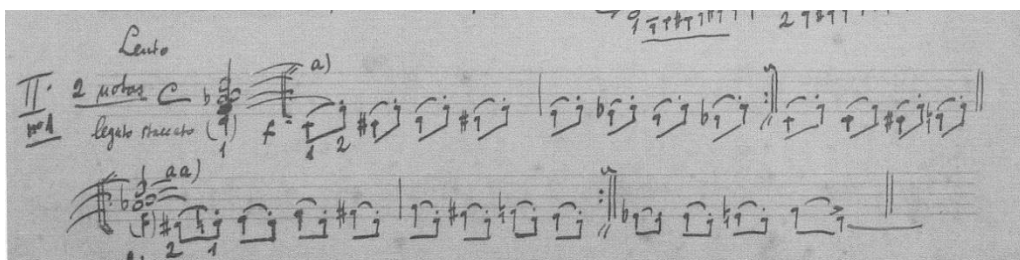 1 2
Lento
a)
II. 2 notas C
nº1 legato staccato (1) f 1 2
aa)
(F) 2 1